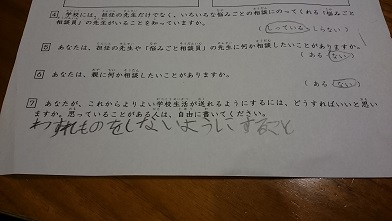 4 学校には、担任の先生だけでなく、いろいろな悩みごとの相談にのってくれる「悩みごと
相談員」の先生がいることを知っていますか。
（しっている・しらない）
5 あなたは、担任の先生や「悩みごと相談員」の先生に何か相談したいことがありますか。
（ある・ない）
6 あなたは、親に何か相談したいことがありますか。
（ある・ない）
7 あなたが、これからよりよい学校生活が送れるようにするには、どうすればいいと思い
ますか。思っていることがある人は、自由に書いてください。
わすれものをしないようにすること